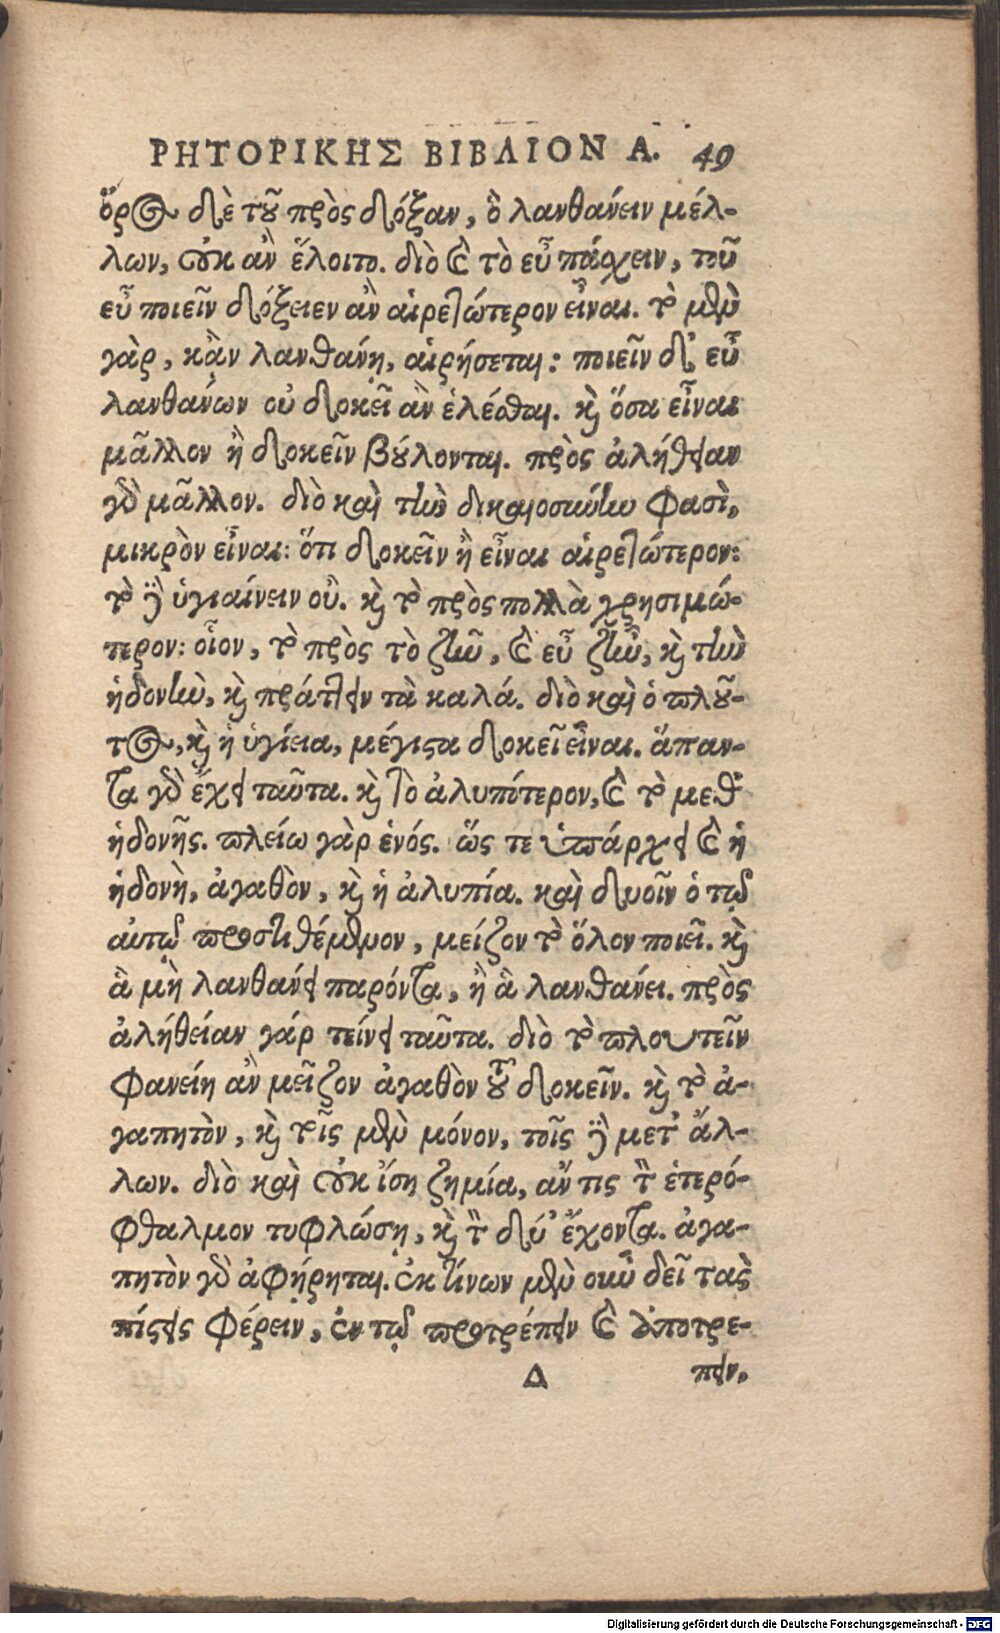 ΡΗΤΟΡΙΚΗΣ ΒΙΒΛΙΟΝ Α. 49
ὅρος δὲ τοῦ πρὸς δόξαν, ὃ λανθάνειν μέλ-
λων, οὐκ ἂν ἕλοιτο. διὸ καὶ τὸ εὖ πάσχειν, τοῦ
εὖ ποιεῖν δόξειεν ἂν αἱρετώτερον εἶναι. τὸ μὲν
γὰρ, κἂν λανθάνῃ, αἱρήσεται: ποιεῖν δ' εὖ
λανθάνων οὐ δοκεῖ ἂν ἑλέσθαι. καὶ ὅσα εἶναι
μᾶλλον ἢ δοκεῖν βούλονται. πρὸς ἀλήθειαν
γὰρ μᾶλλον. διὸ καὶ τὴν δικαιοσύνην φασὶ,
μικρὸν εἶναι: ὅτι δοκεῖν ἢ εἶναι αἱρετώτερον:
τὸ δὲ ὑγιαίνειν οὔ. καὶ τὸ πρὸς πολλὰ χρησιμώ-
τερον: οἷον, τὸ πρὸς τὸ ζῆν, καὶ εὖ ζῆν, καὶ τὴν
ἡδονὴν, καὶ πράττειν τὰ καλά. διὸ καὶ ὁ πλοῦ-
τος, καὶ ἡ ὑγίεια, μέγιστα δοκεῖ εἶναι. ἅπαν-
τα γὰρ ἔχει ταῦτα. καὶ τὸ ἀλυπότερον, καὶ τὸ μεθ'
ἡδονῆς. πλείω γὰρ ἑνός. ὥς τε ὑπάρχει καὶ ἡ
ἡδονὴ, ἀγαθὸν, καὶ ἡ ἀλυπία. καὶ δυοῖν ὁ τῷ
αὐτῷ προστιθέμενον, μείζον τὸ ὅλον ποιεῖ. καὶ
ἃ μὴ λανθάνει παρόντα, ἢ ἃ λανθάνει. πρὸς
ἀλήθείαν γάρ τείνει ταῦτα. διὸ τὸ πλουτεῖν
φανείη ἂν μεῖζον ἀγαθὸν τοῦ δοκεῖν. καὶ τὸ ἀ-
γαπητὸν, καὶ τοῖς μὲν μόνον, τοῖς δὲ μετ' ἄλ-
λων. διὸ καὶ οὐκ ἴση ζημία, ἄν τις τὸν ἑτερό-
φθαλμον τυφλώσῃ, καὶ τὸν δύ' ἔχοντα. ἀγα-
πητὸν γὰρ ἀφῄρηται. ἐκ τίνων μὲν οὖν δεῖ τὰς
πίστεις φέρειν, ἐν τῷ προτρέπειν καὶ ἀποτρέ-
Δ πειν,
Digitalisierung gefördert durch die Deutsche Forschungsgemeinschaft - DFG